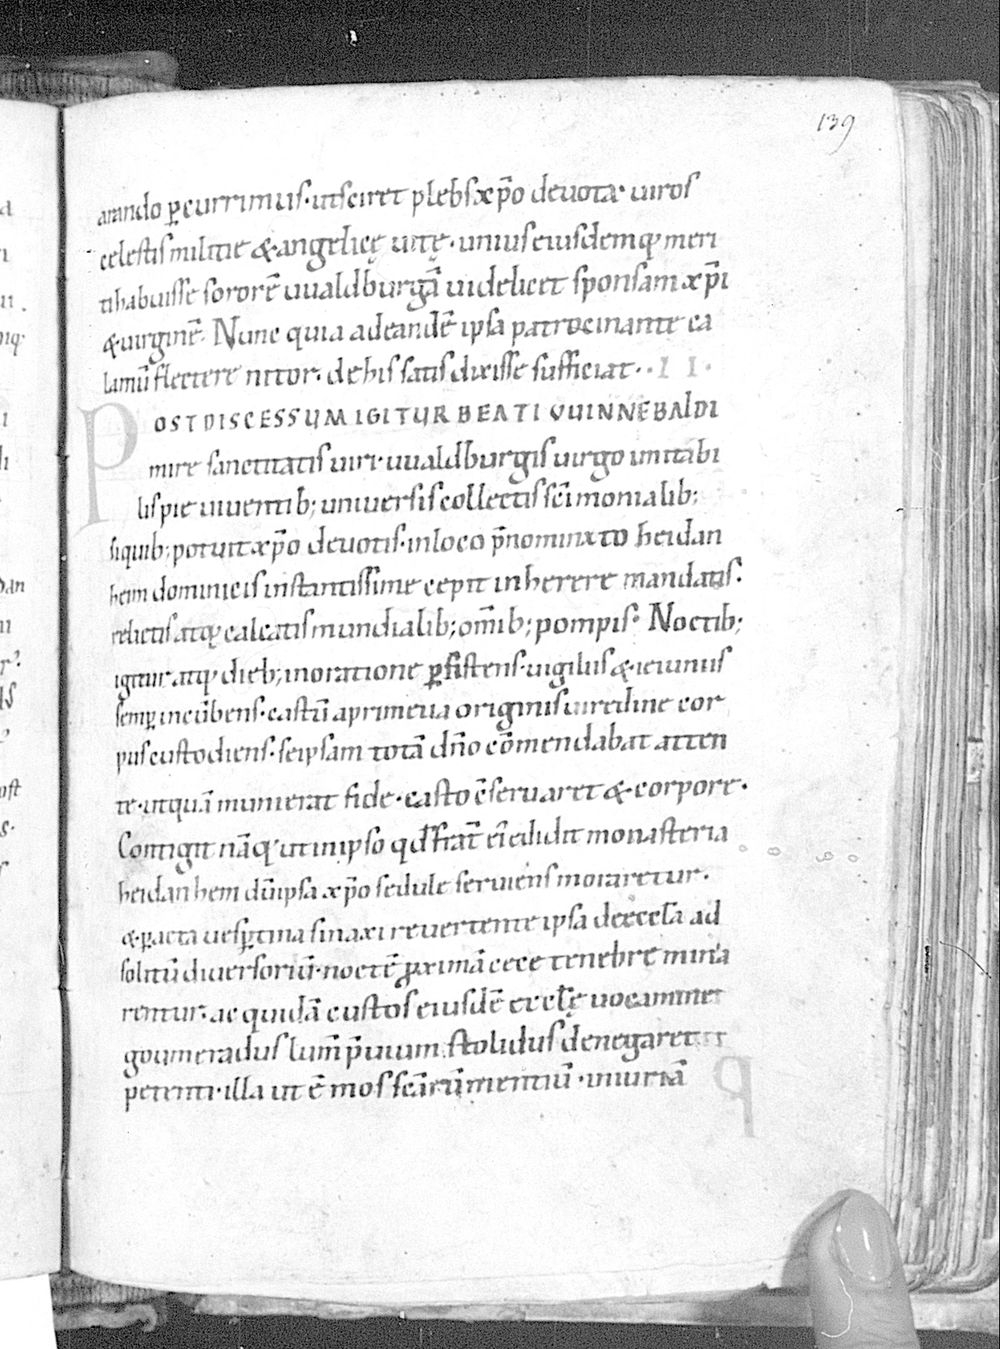 139
arando p̱currimus · utsciret plebs xp̄o deuota · uiros
celestis militie & angelicę uitę · unius eiusdemq; meri
ti habuisse sororē uualdburgā uidelicet sponsam xp̄i
& uirginē · Nunc quia ad eandē ipsa patrocinante ca
lamū flectere nitor · de his satis dixisse sufficiat · · I I ·
POST DISCESSUM IGITUR BEATI VUINNEBALDI
mire sanctitatis uiri · uualdburgis uirgo imitabi
lis pie uiuentib; uniuersis collectis sc̄imonialib;
siquib; potuit xp̄o deuotis · inloco p̄nominato heidan
heim dominicis instantissime cepit inherere mandatis ·
relictis atq; calcatis mundialib; om̄ib; pompis · Noctib;
igitur atq; dieb; inoratione p̱sistens · uigiliis & ieiuniis
semp̱ incūbens · castū aprimeua originis uiredine cor
pus custodiens · seipsam totā dn̄o cōmendabat atten
te · utquā munierat fide · casto c̄seruaret & corpore ·
Contigit nāq; ut inipso qd̄ frāt̄ ei̅ edidit monasteria
heidanhem dū ipsa xp̄o sedule seruiens moraretur ·
& p̱acta uesp̱tina sinaxi reuertente ipsa deęcclā ad
solitū diuersoriū · noctē p̱ximā ecce tenebre minā
rentur · ac quidā custos eiusdē ęcclę uocamine
goumeradus lum̄ p̄uium stolidus denegaret
petenti · illa ut ē mos sc̄arū mentiū · iniuriā